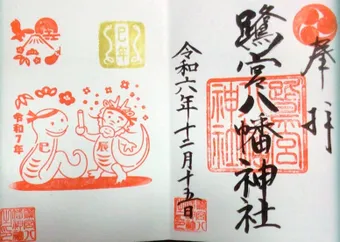 奉拝
鷺宮八幡神社
鷺宮八幡神社
令和六年十二月十五日
巳年
令和7年
巳
辰